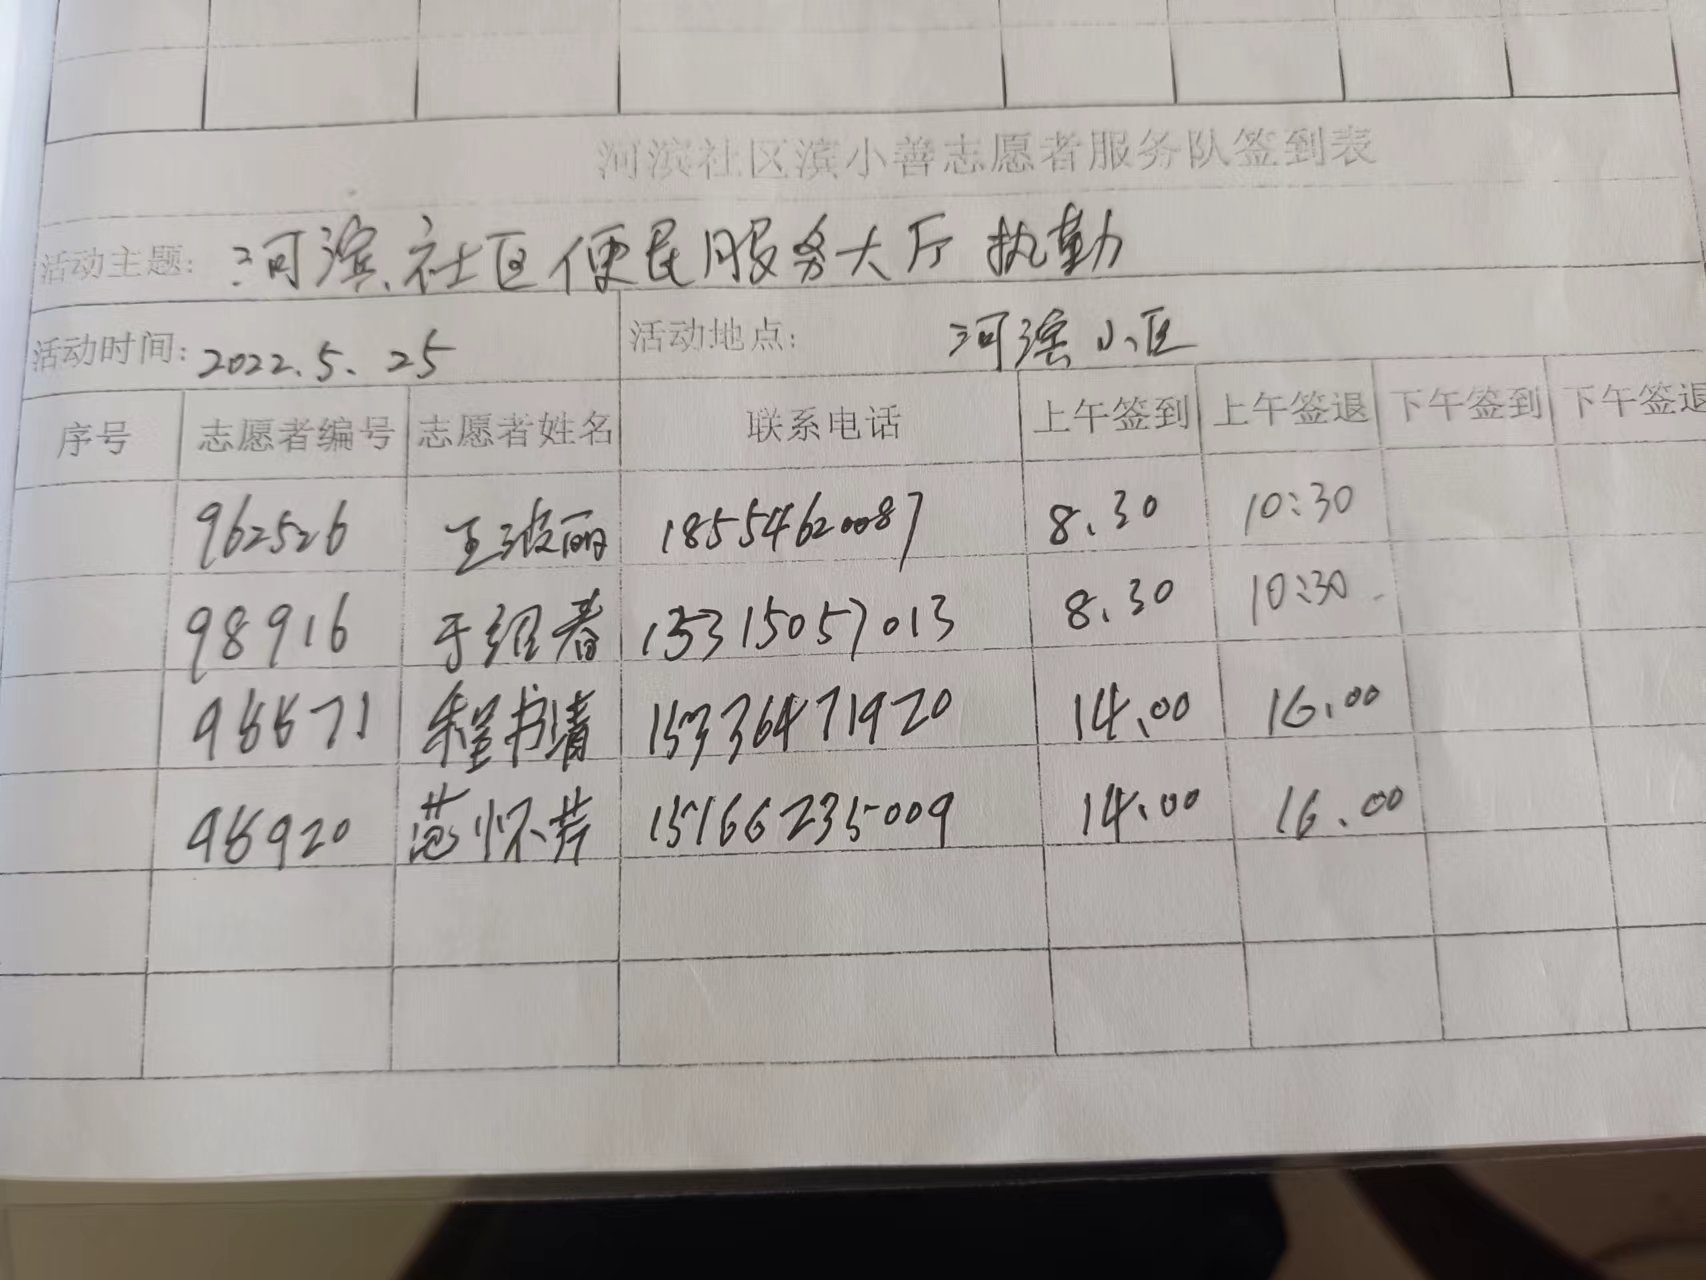 河滨社区滨小善志愿者服务队签到表
活动主题: 河滨社区便民服务大厅执勤
活动时间: 2022.5.25 活动地点: 河滨小区
序号 志愿者编号 志愿者姓名 联系电话 上午签到 上午签退 下午签到 下午签退
962526 王波丽 18554620087 8.30 10:30
98916 于组春 13315057013 8.30 10:30
98871 书清 15336471920 14.00 16.00
98920 范怀芹 15166235009 14.00 16.00